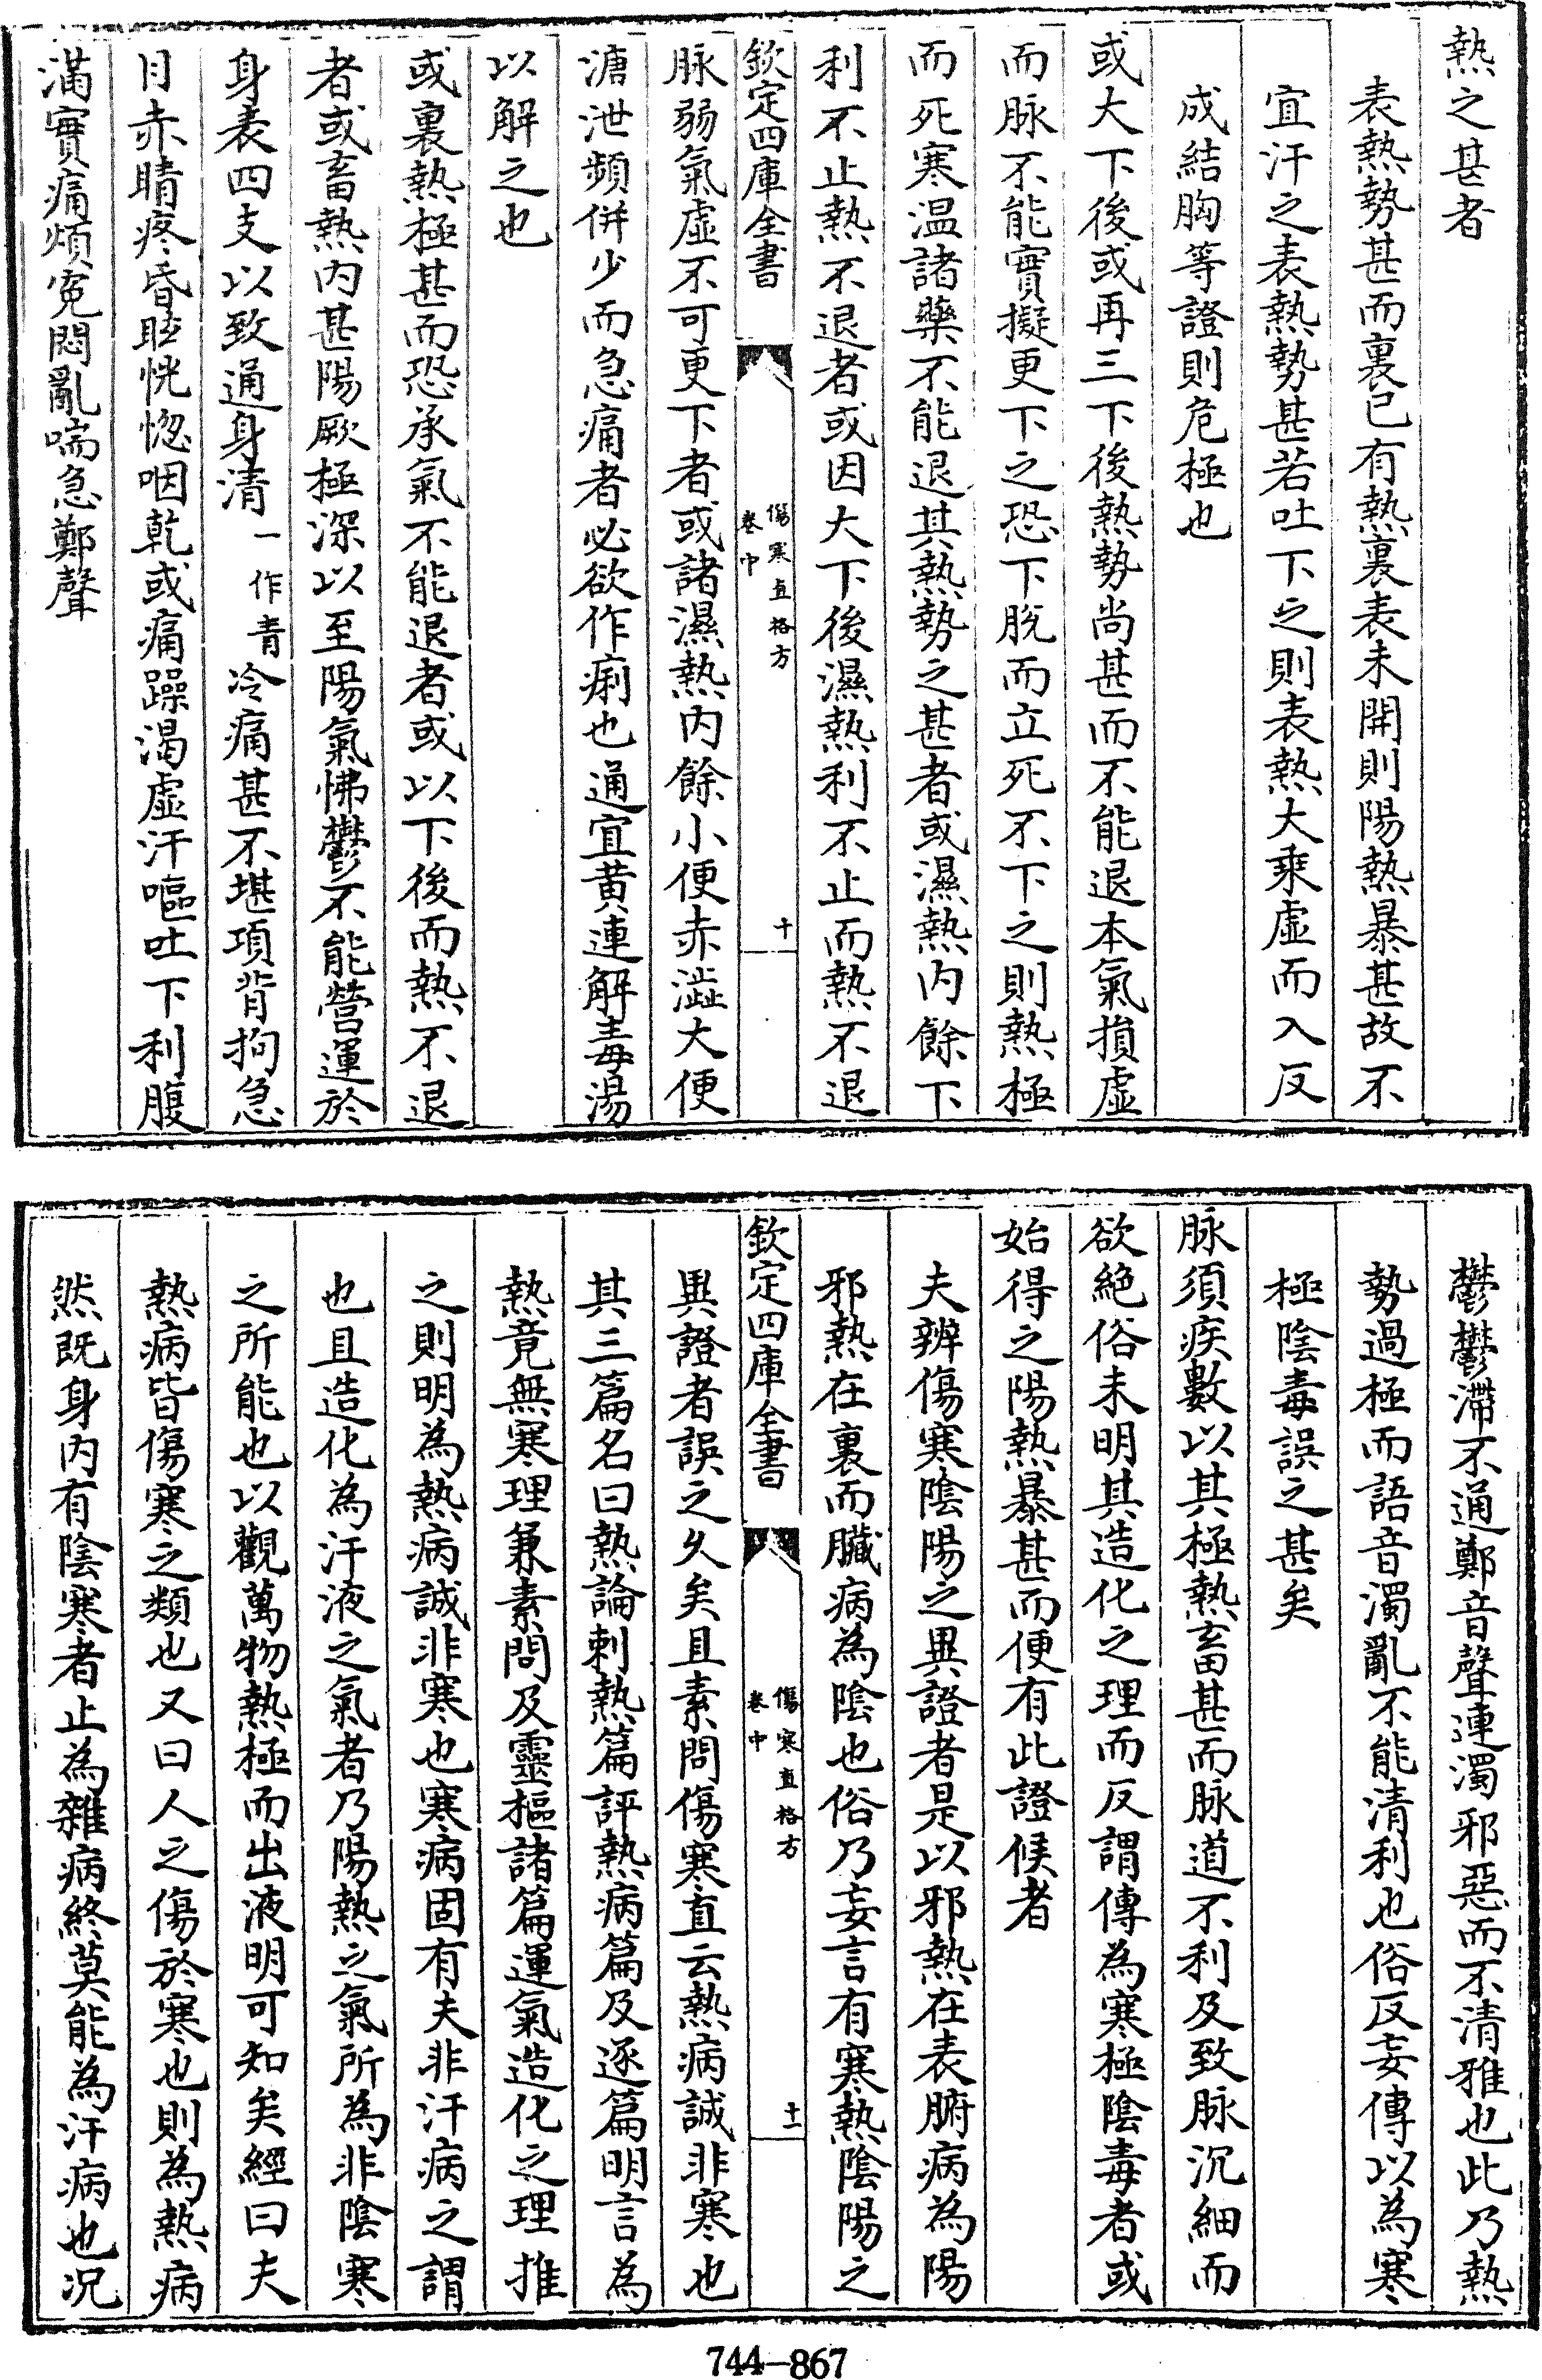 熱之甚者
表熱勢甚而裏已有熱裏表未開則陽熱暴甚故不
宜汗之表熱勢甚若吐下之則表熱大乘虛而入反
成結胸等證則危極也
或大下後或再三下後熱勢尚甚而不能退本氣損虛
而脉不能實擬更下之恐下脫而立死不下之則熱極
而死寒温諸藥不能退其熱勢之甚者或濕熱内餘下
利不止熱不退者或因大下後濕熱利不止而熱不退
欽定四庫全書
傷寒直格方
卷中
十
脉弱氣虛不可更下者或諸濕熱内餘小便赤澁大便
溏泄頻併少而急痛者必欲作痢也通宜黄連解毒湯
以解之也
或裏熱極甚而恐承氣不能退者或以下後而熱不退
者或畜熱内甚陽厥極深以至陽氣怫鬱不能營運於
身表四支以致通身清一作青冷痛甚不堪項背拘急
目赤睛疼昏眩恍惚咽乾或痛躁渴虛汗嘔吐下利腹
滿實痛煩寃悶亂喘急鄭聲
鬱鬱滯不通鄭音聲連濁邪惡而不清雅也此乃熱
勢過極而語音濁亂不能清利也俗反妄傳以為寒
極陰毒誤之甚矣
脉須疾數以其極熱畜甚而脉道不利及致脉沉細而
欲絶俗未明其造化之理而反謂傳為寒極陰毒者或
始得之陽熱暴甚而便有此證候者
夫辨傷寒陰陽之異證者是以邪熱在表腑病為陽
邪熱在裏而臟病為陰也俗乃妄言有寒熱陰陽之
欽定四庫全書
傷寒直格方
卷中
十一
異證者誤之久矣且素問傷寒直云熱病誠非寒也
其三篇名曰熱論刺熱篇評熱病篇及逐篇明言為
熱竟無寒理兼素問及靈樞諸篇運氣造化之理推
之則明為熱病誠非寒也寒病固有夫非汗病之謂
也且造化為汗液之氣者乃陽熱之氣所為非陰寒
之所能也以觀萬物熱極而出液明可知矣經曰夫
熱病皆傷寒之類也又曰人之傷於寒也則為熱病
然既身内有陰寒者止為雜病終莫能為汗病也况
744-867